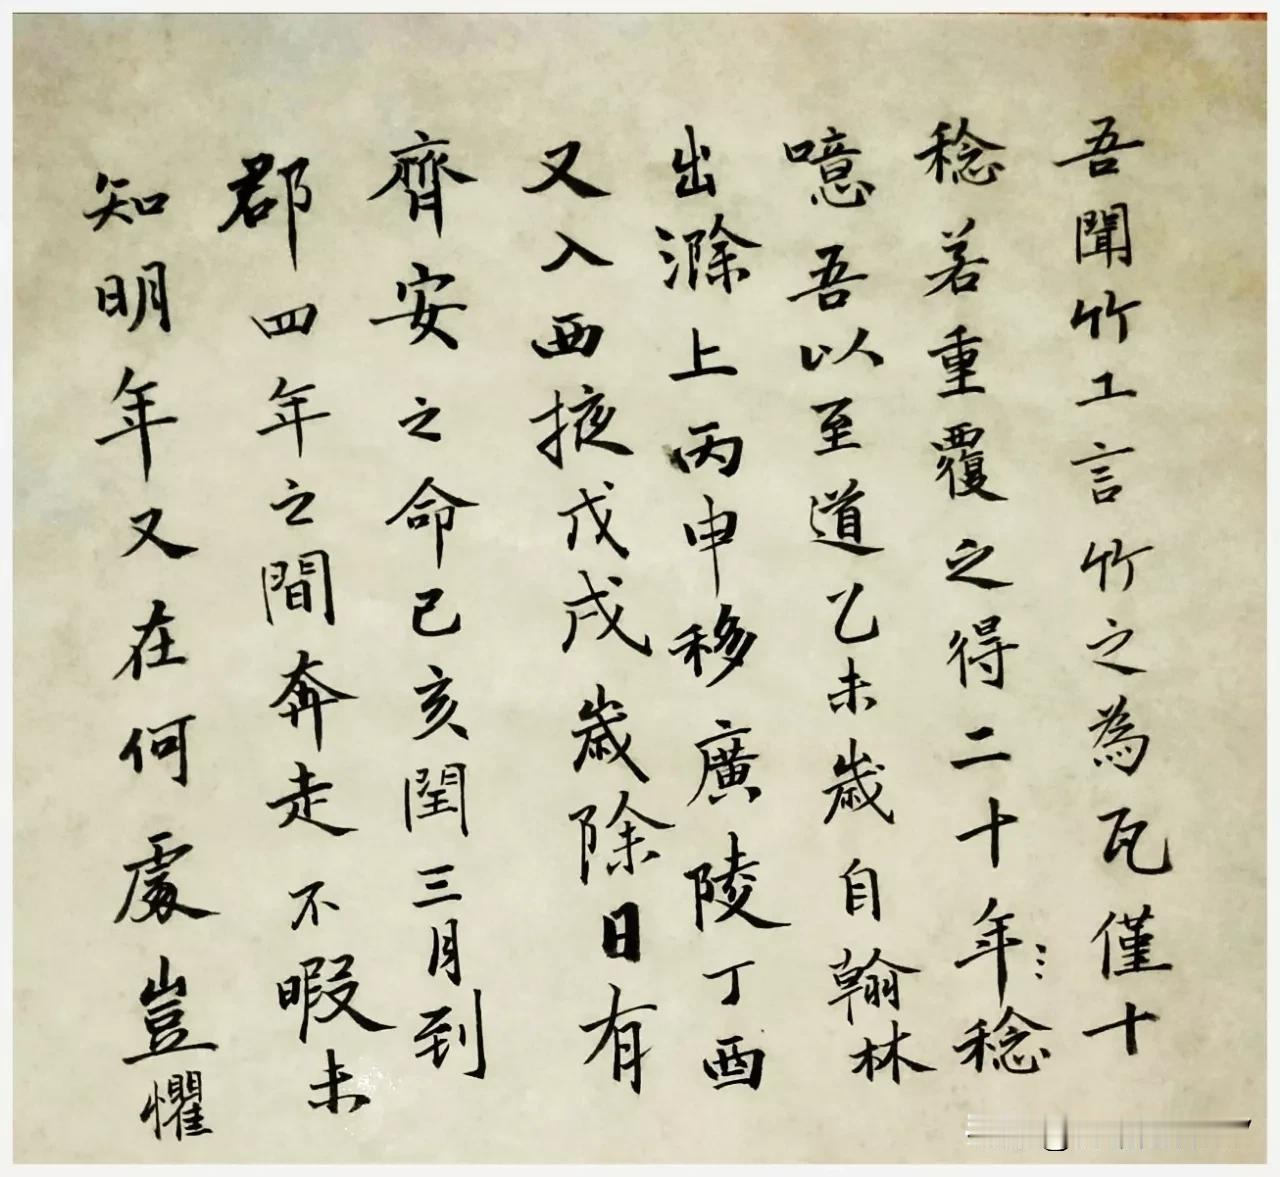 吾聞竹工言竹之為瓦僅十
稔若重覆之得二十年稔
噫吾以至道乙未歲自翰林
出滁上丙申移廣陵丁酉
又入西掖戊戌歲除日有
齊安之命己亥閏三月到
郡四年之間奔走不暇未
知明年又在何處豈懼